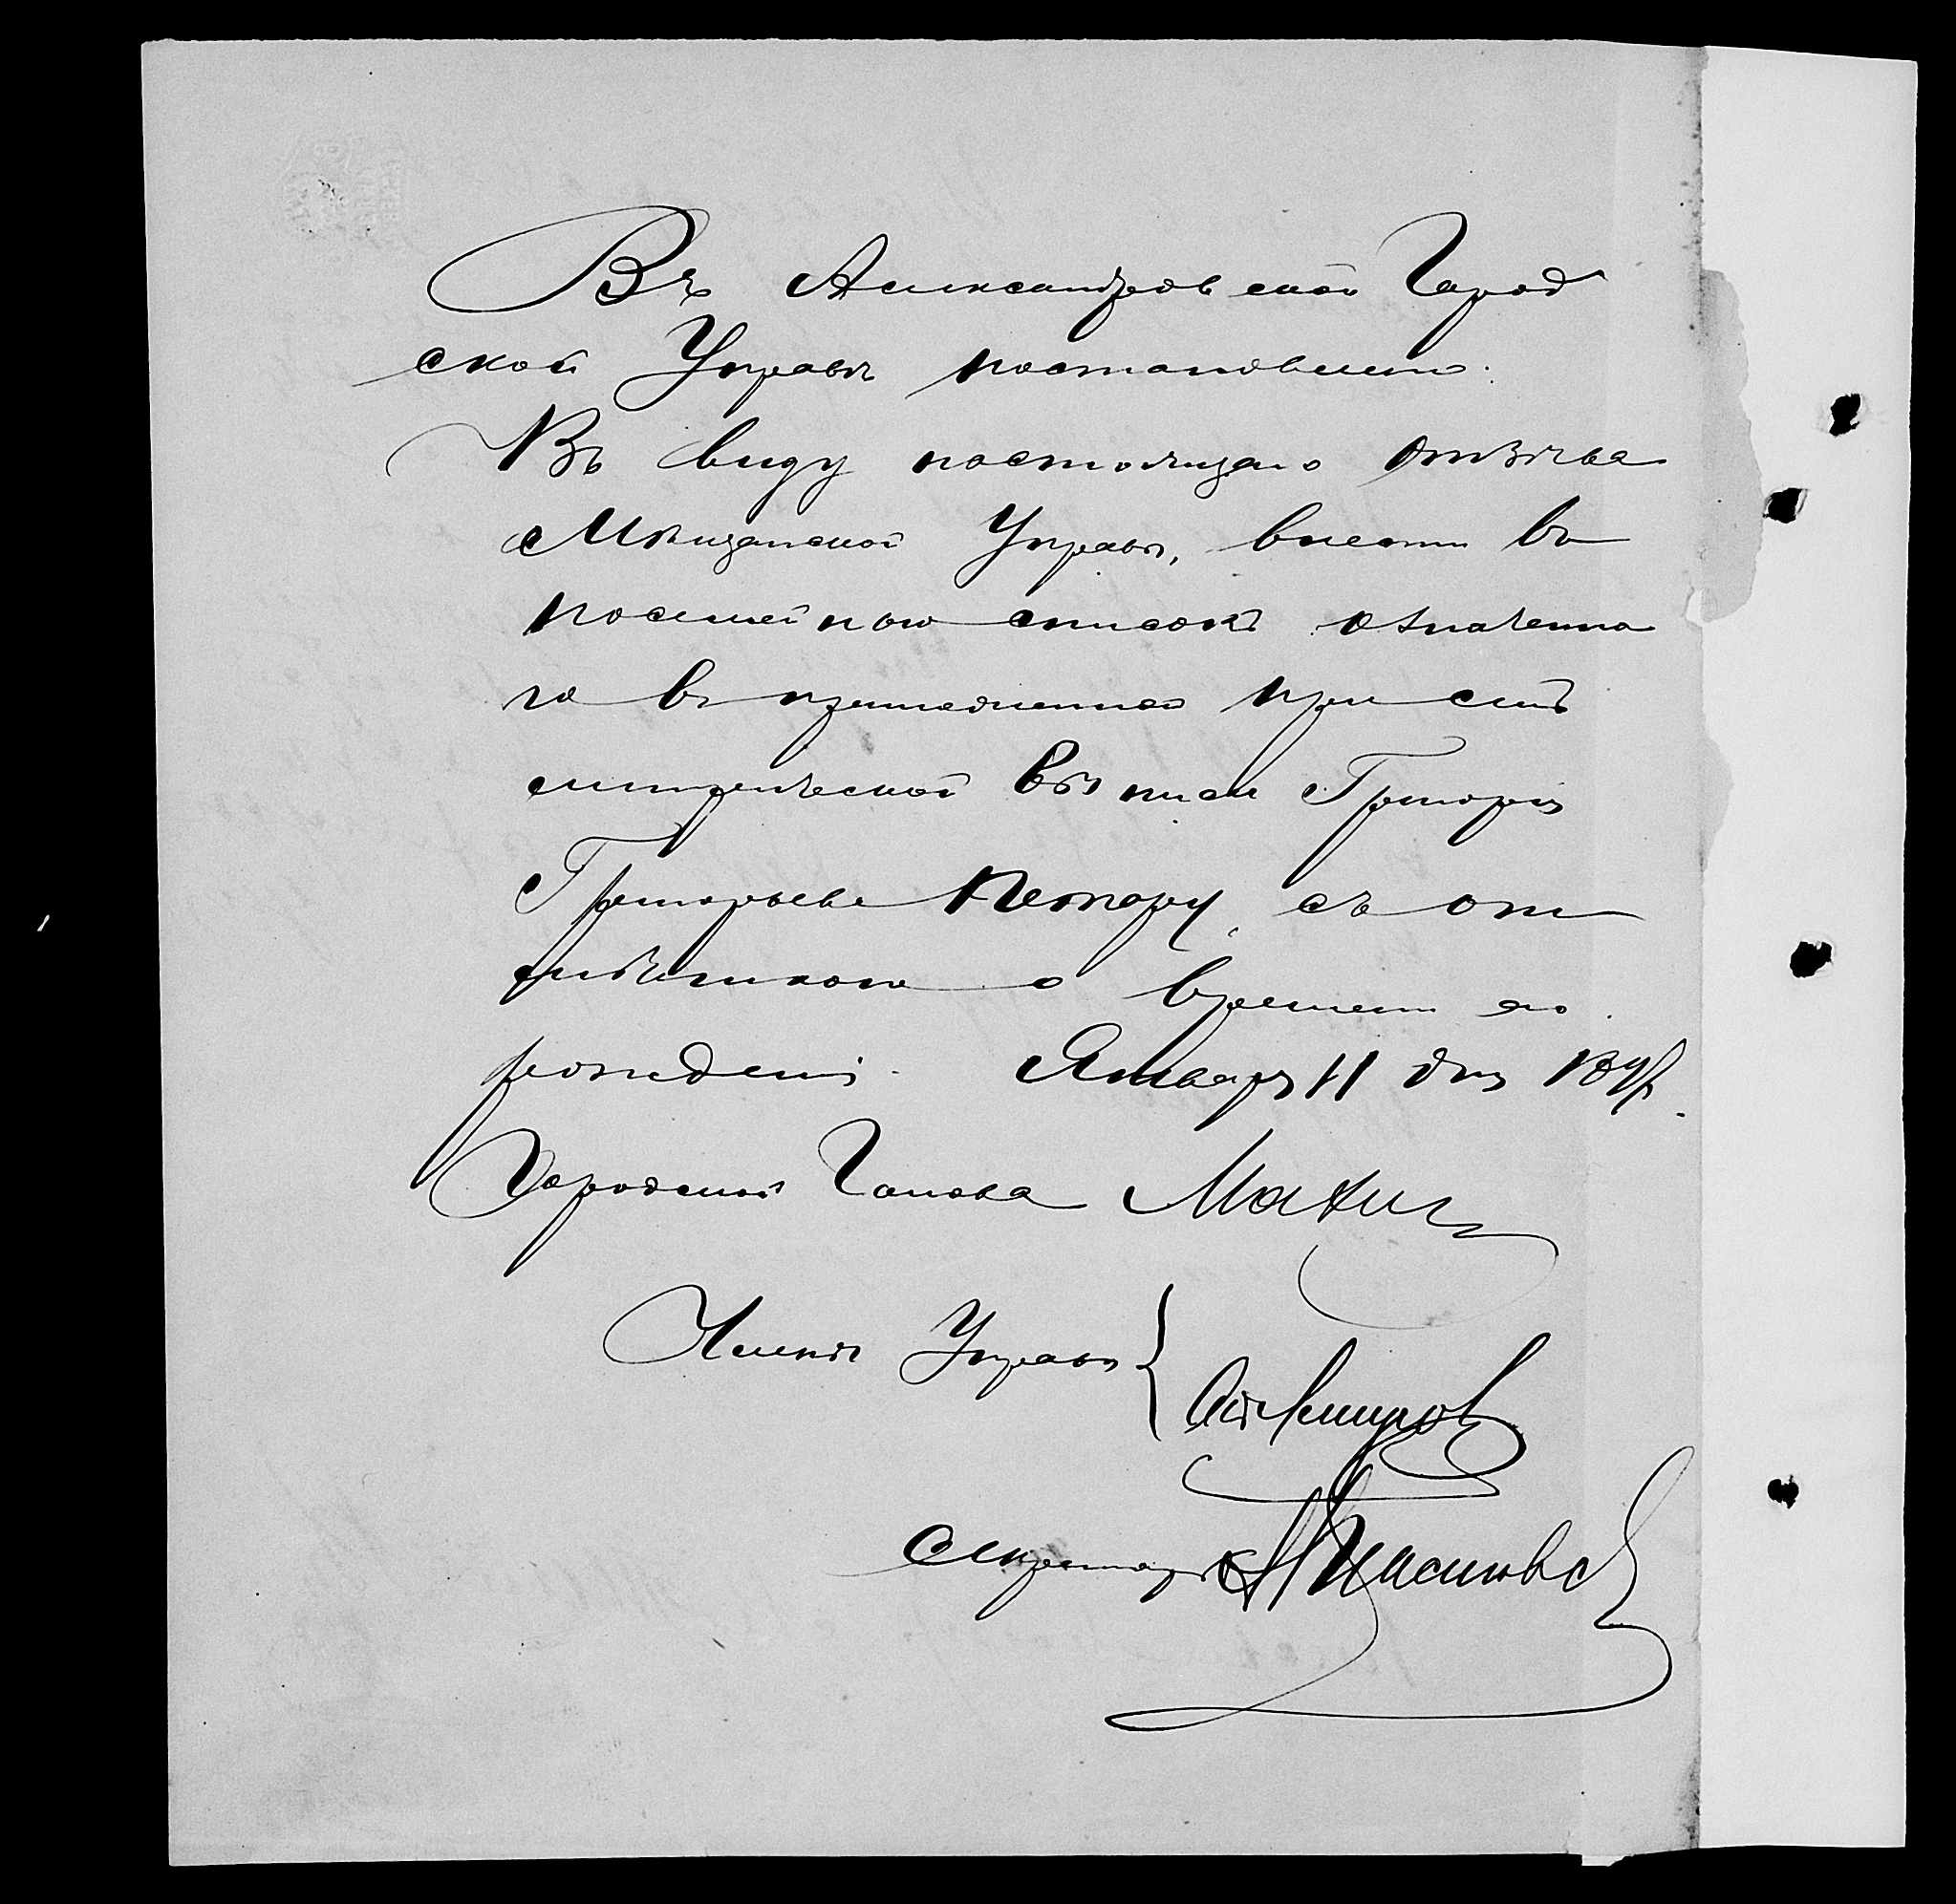 Въ Александровской Город
ской Управѣ постановлено:
Въ виду настоящаго отзыва
Мѣщанской Управы, внести въ
посемейный списокъ означенна
го въ приложенной при семъ
метрической выписи Григорія
Григорьева Кеторы, съ от
мѣткою о времени его
рожденія. Января 11 дня
Городской Голова Махин
Члены Управы
Секретарь